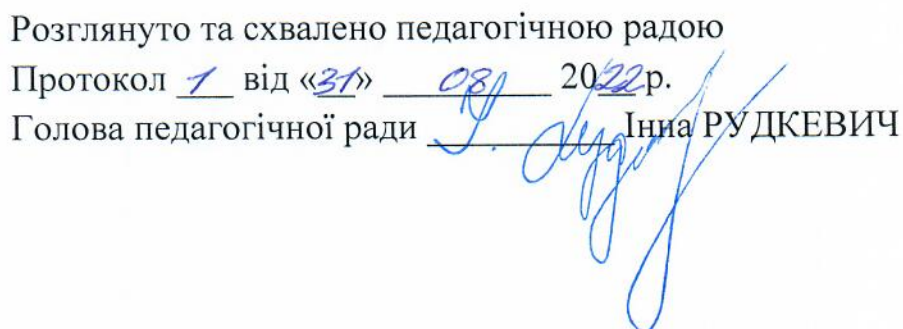 Розглянуто та схвалено педагогічною радою
Протокол 1 від «31» 08 2022 р.
Голова педагогічної ради Інна РУДКЕВИЧ